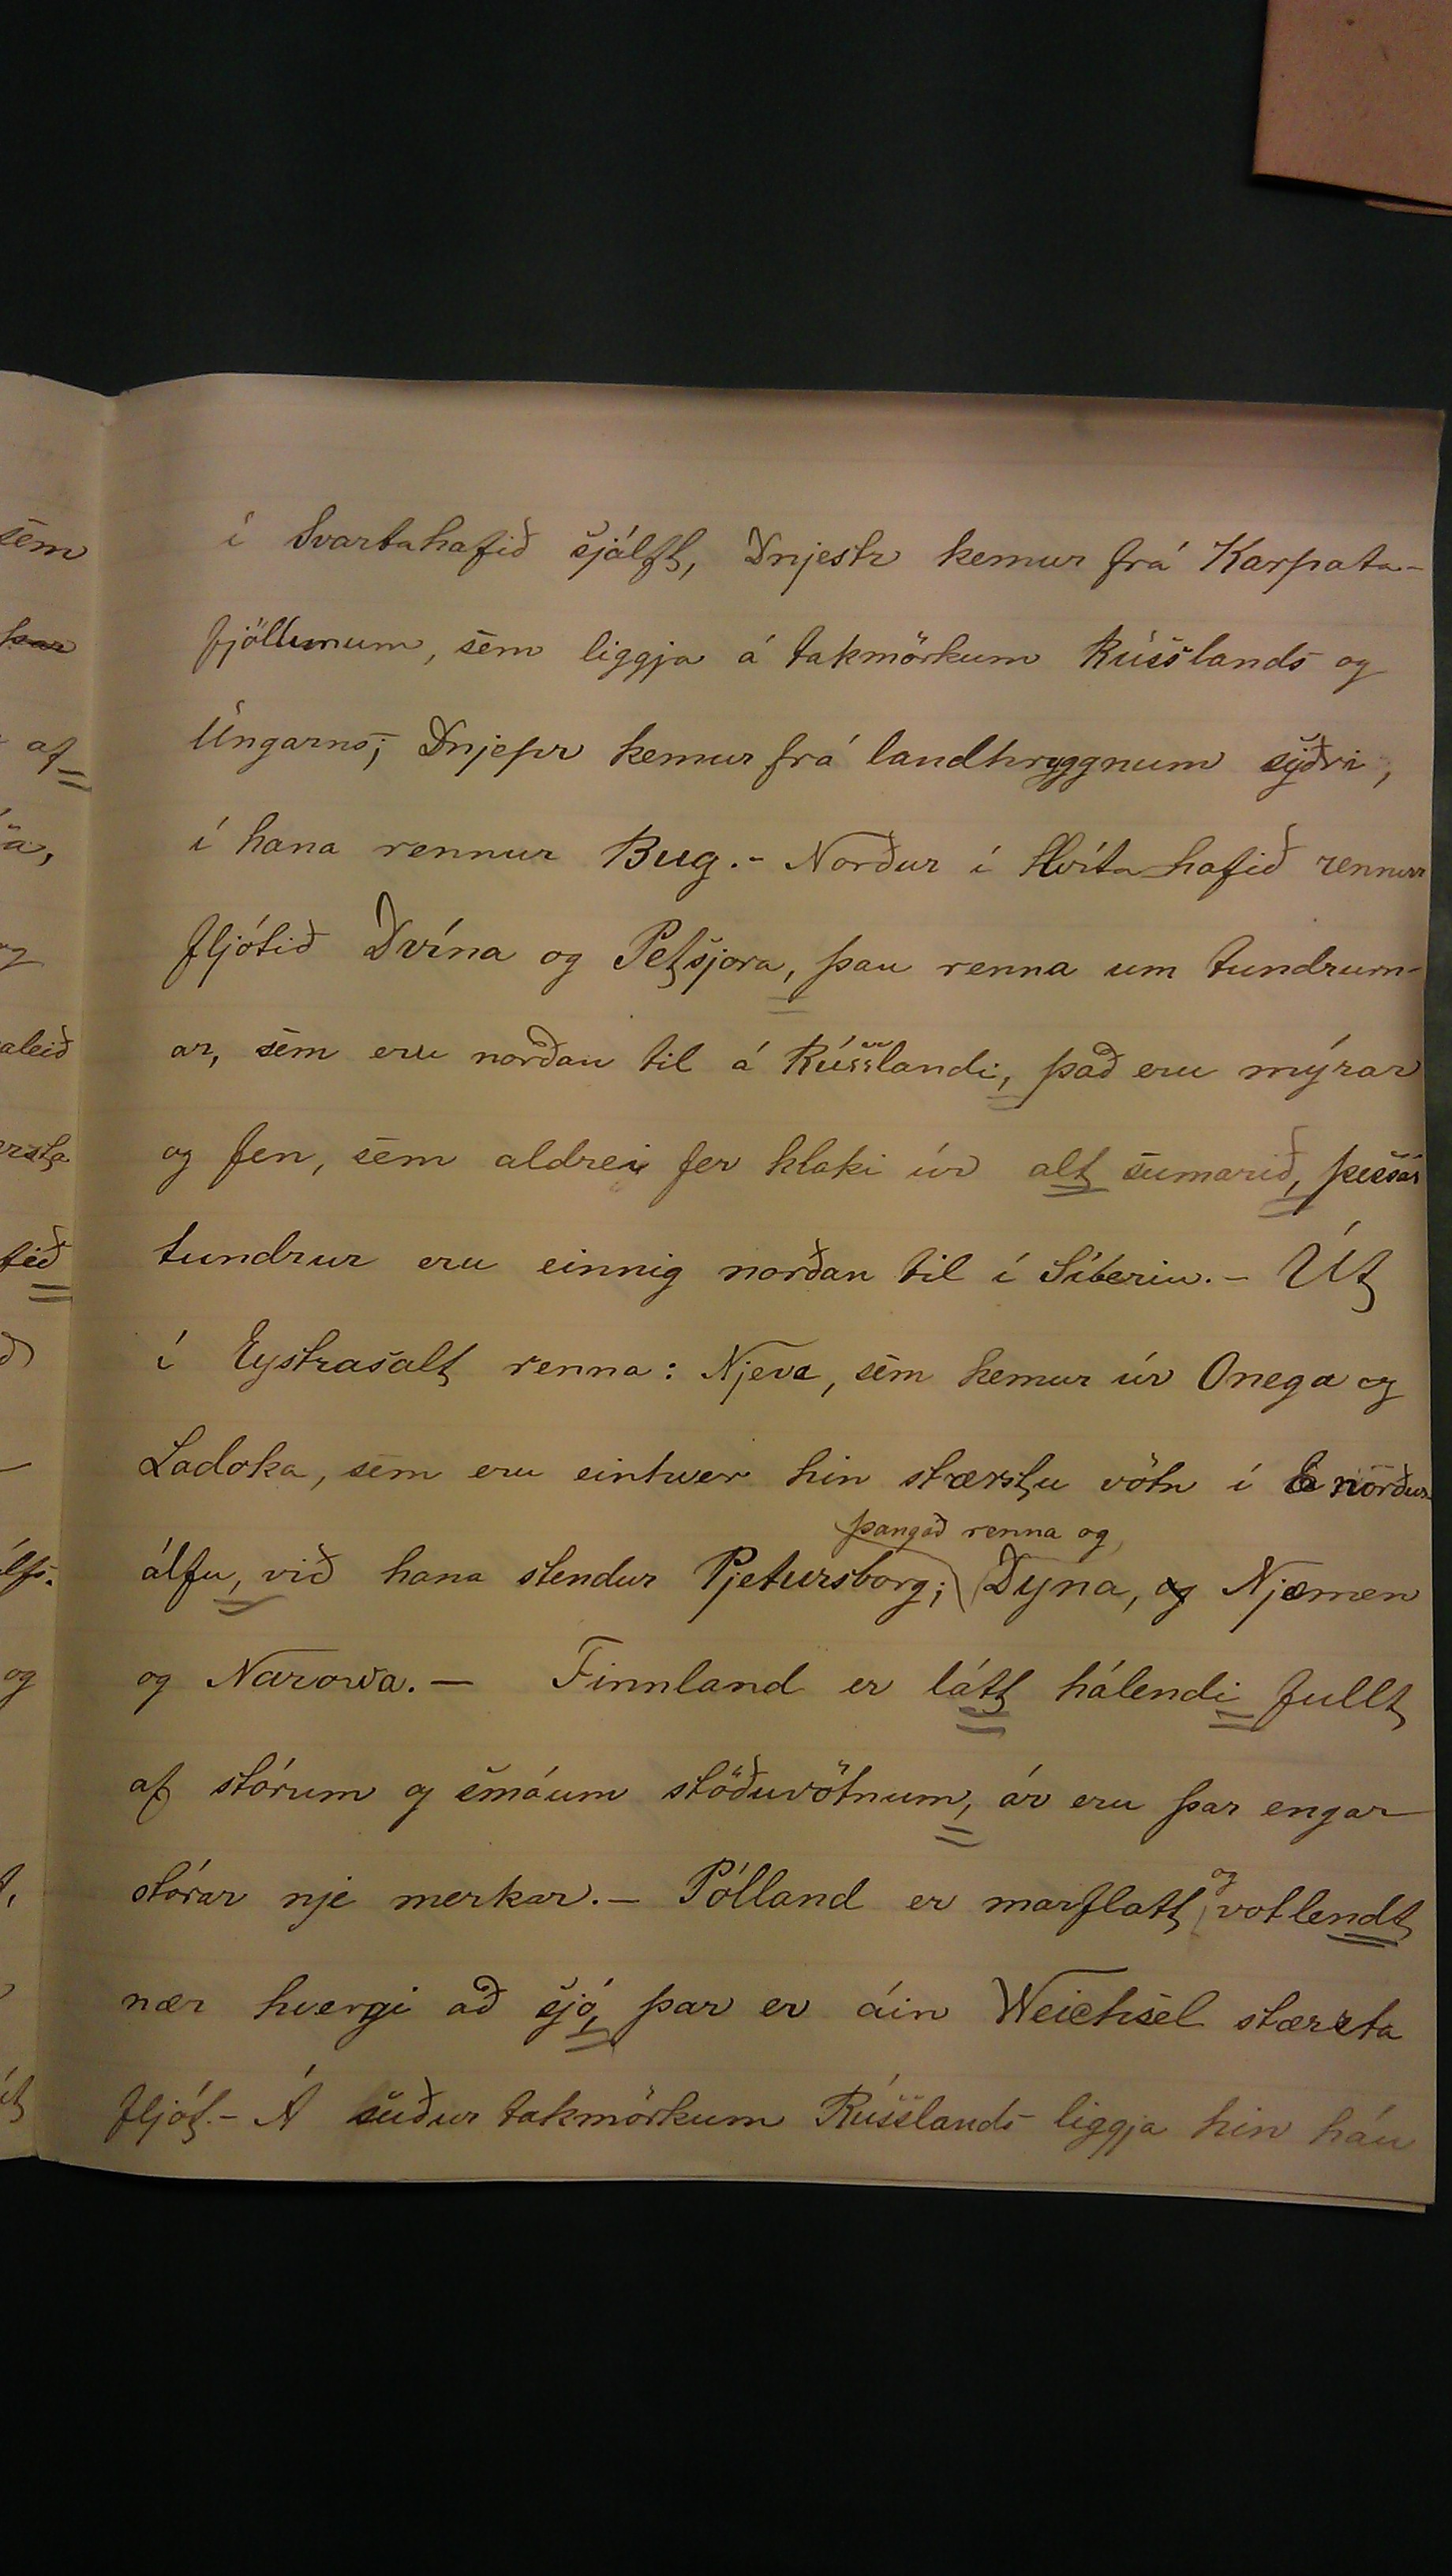 í Svartahafið sjálft, Dnjestr kemur frá Karpata-
fjöllunum, sem liggja á takmörkum Rússlands og
Ungarns; Dnjepr kemur frá landhryggnum syðri,
í hana rennur Bug. - Norður í Hvíta hafið rennur
fljótið Dvína og Petsjora, þau renna um tundrurn-
ar, sem eru norðan til á Rússlandi, það eru mýrar
og fen, sem aldrei fer klaki úr alt sumarið, þessar
tundrur eru einnig norðan til í Síberiu. - Út
í Eystrasalt renna: Njeva, sem kemur úr Onega og
Ladoka, sem eru einhver hin stærstu vötn í norður
þangað renna og
álfu, við hana stendur Pjetursborg; Dyna, og Njemen
og Narowa. - Finnland er látt hálendi fullt
af stórum og smáum stöðuvötnum, ár eru þar engar
stórar nje merkar. - Pólland er marflatt og votlendt
nær hvergi að sjó, þar er áin Weichsel stærsta
fljót. - Á suður takmörkum Rússlands liggja hin háu
sem
þar
af
aleið
ersta
tið
og